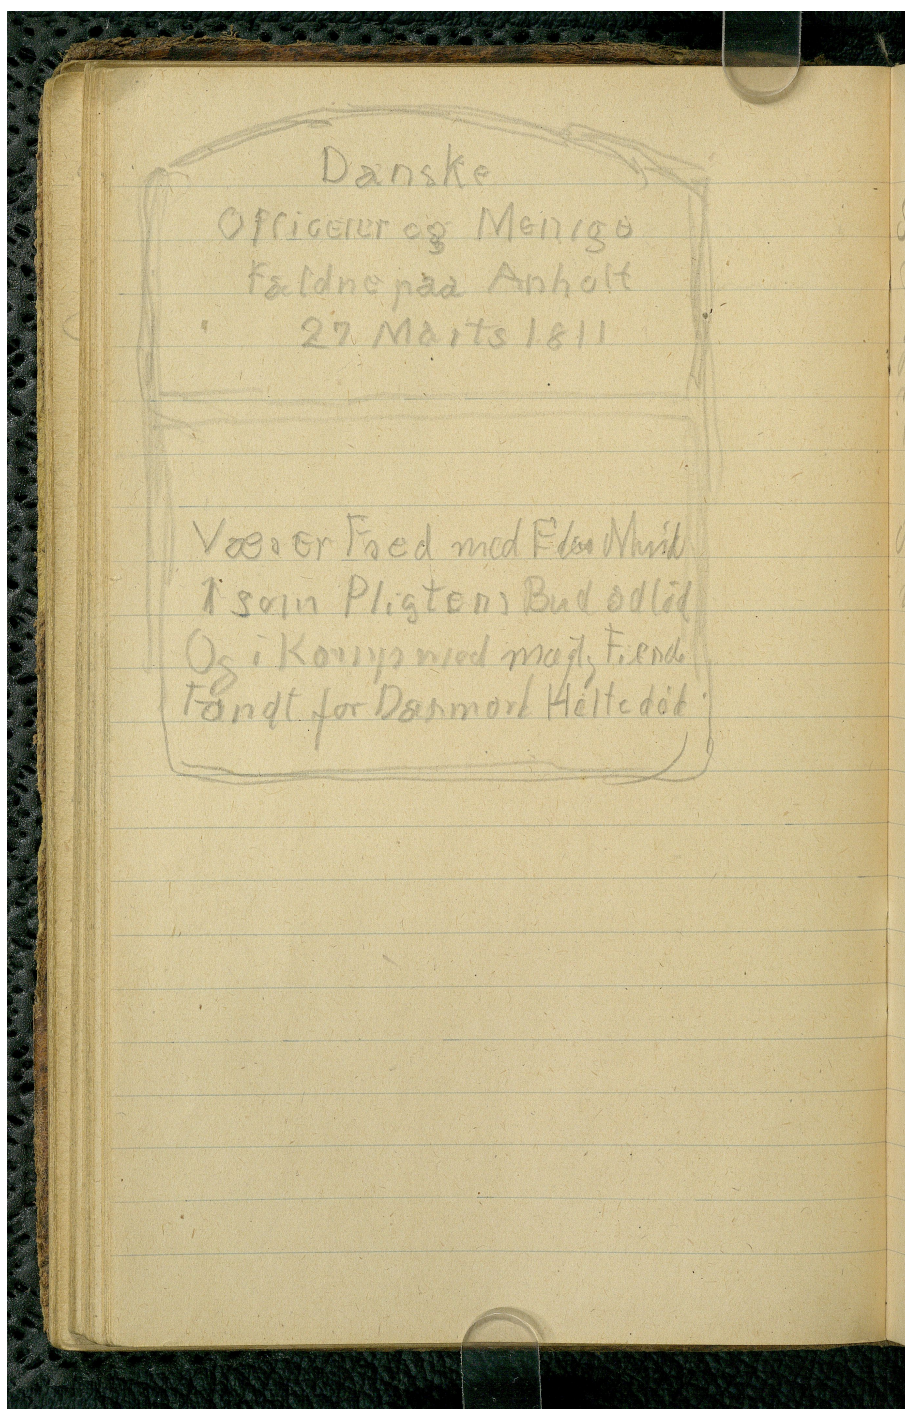 Danske
Officerer og Menige
Faldne paa Anholt
27 Marts 1811
Være Fred med Eders Minde
I som Pligtens Bud adlød
Og i Kamp med mægt. Fiende
Fandt for Danmark Heltedød